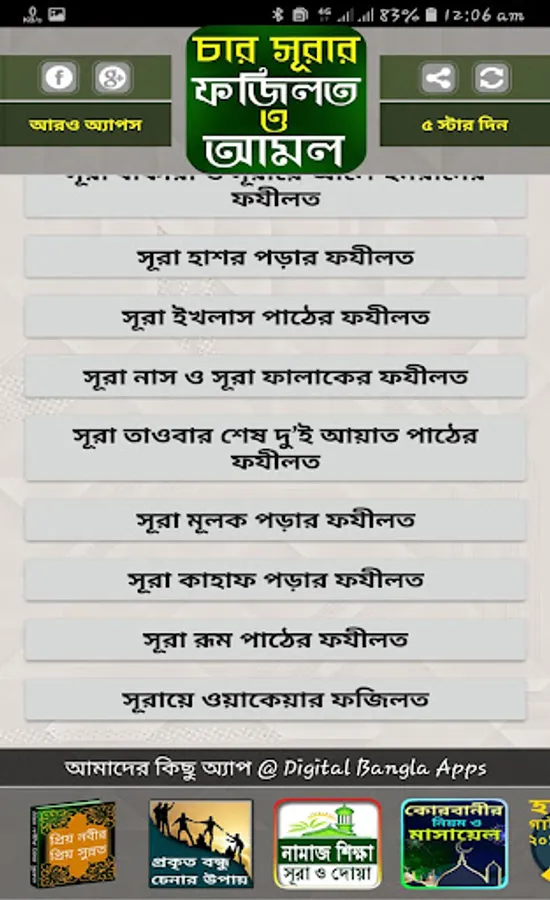 83% 12:06 am
চার সূরার
ফজিলত
ও
আমল
আরও অ্যাপস
৫ স্টার দিন
ফযীলত
সূরা হাশর পড়ার ফযীলত
সূরা ইখলাস পাঠের ফযীলত
সূরা নাস ও সূরা ফালাকের ফযীলত
সূরা তাওবার শেষ দু'ই আয়াত পাঠের
ফযীলত
সূরা মূলক পড়ার ফযীলত
সূরা কাহাফ পড়ার ফযীলত
সূরা রূম পাঠের ফযীলত
সূরায়ে ওয়াকেয়ার ফজিলত
আমাদের কিছু অ্যাপ @ Digital Bangla Apps
প্রিয় নবীর
প্রিয় সুন্নত
প্রকৃত বন্ধু
চেনার উপায়
নামাজ শিক্ষা
সূরা ও দোয়া
কোরবানীর
নিয়ম ও
মাসায়েল